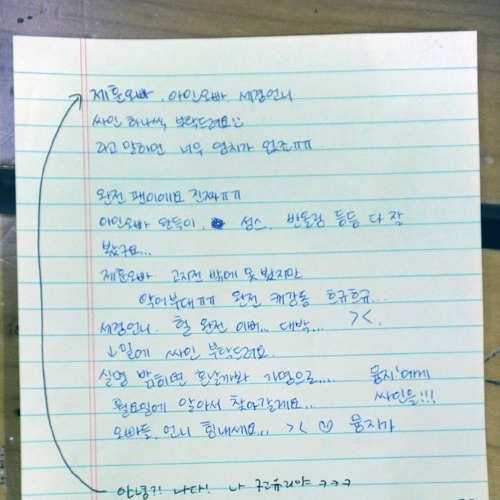 제훈오빠, 아인오빠, 세경언니
싸인 하나씩, 부탁드려요
라고 말하면 너무 염치가 없죠ㅠㅠ
완전 팬이에요 진짜ㅠㅠ
아인오빠 완득이, 성스, 반올림 등등 다 잘
봤구요...
제훈오빠 고지전 밖에 못 봤지만
악어부대ㅠㅠ 완전 캐감동 흐규흐규...
세경언니. 헐 완전 이뻐... 대박... ><.
↓밑에 싸인 부탁드려요.
실명 밝히면 혼날까봐 가명으로.... 뮹지'에게
월요일에 알아서 찾아갈게요... 싸인을!!!
오빠들, 언니 힘내세요... >< 뮹지가
안녕?! 나다! 나 구유리야 ㅋㅋㅋ